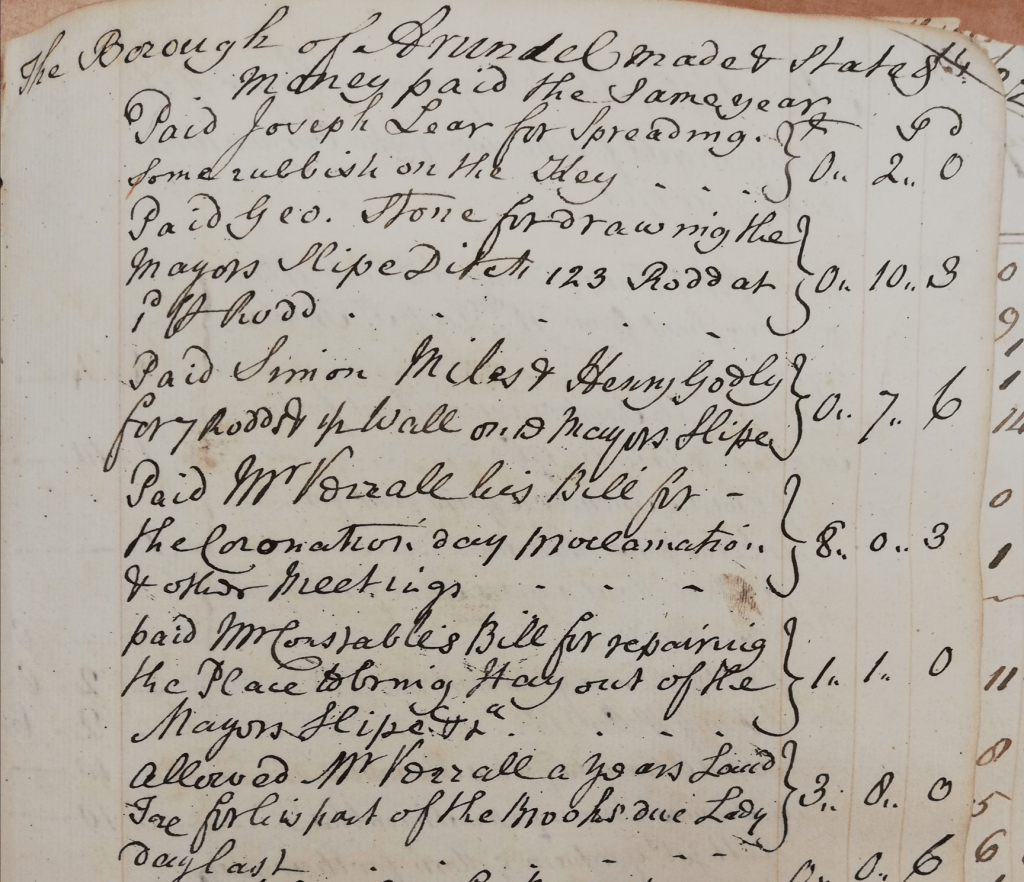 The Borough of Arundel made & State &
money paid the Same year
£ S d
Paid Joseph Lear for Spreading
Some rubbish on the Key . . . . } 0.. 2.. 0
Paid Geo. Stone for drawing the
Mayors Slipe Ditch 123 Rodd at } 0.. 10.. 3
1d P Rodd . . . .
Paid Simon Miles & Henry Godly
for 7 Rodds wall on Mayors Slipe } 0.. 7.. 6
Paid Mr Verrall his Bill for -
the Coronation day proclamation } 8.. 0.. 3
& other Meetings - - -
paid Mr Constables Bill for repairing
the Place to bring Hay out of the } 1.. 1.. 0
Mayors Slipe &ca . . .
allowed Mr Verrall a years Land
Tax for his part of the Brooks due Lady } 3.. 8.. 0
day last . . - - -
0.. 0.. 6